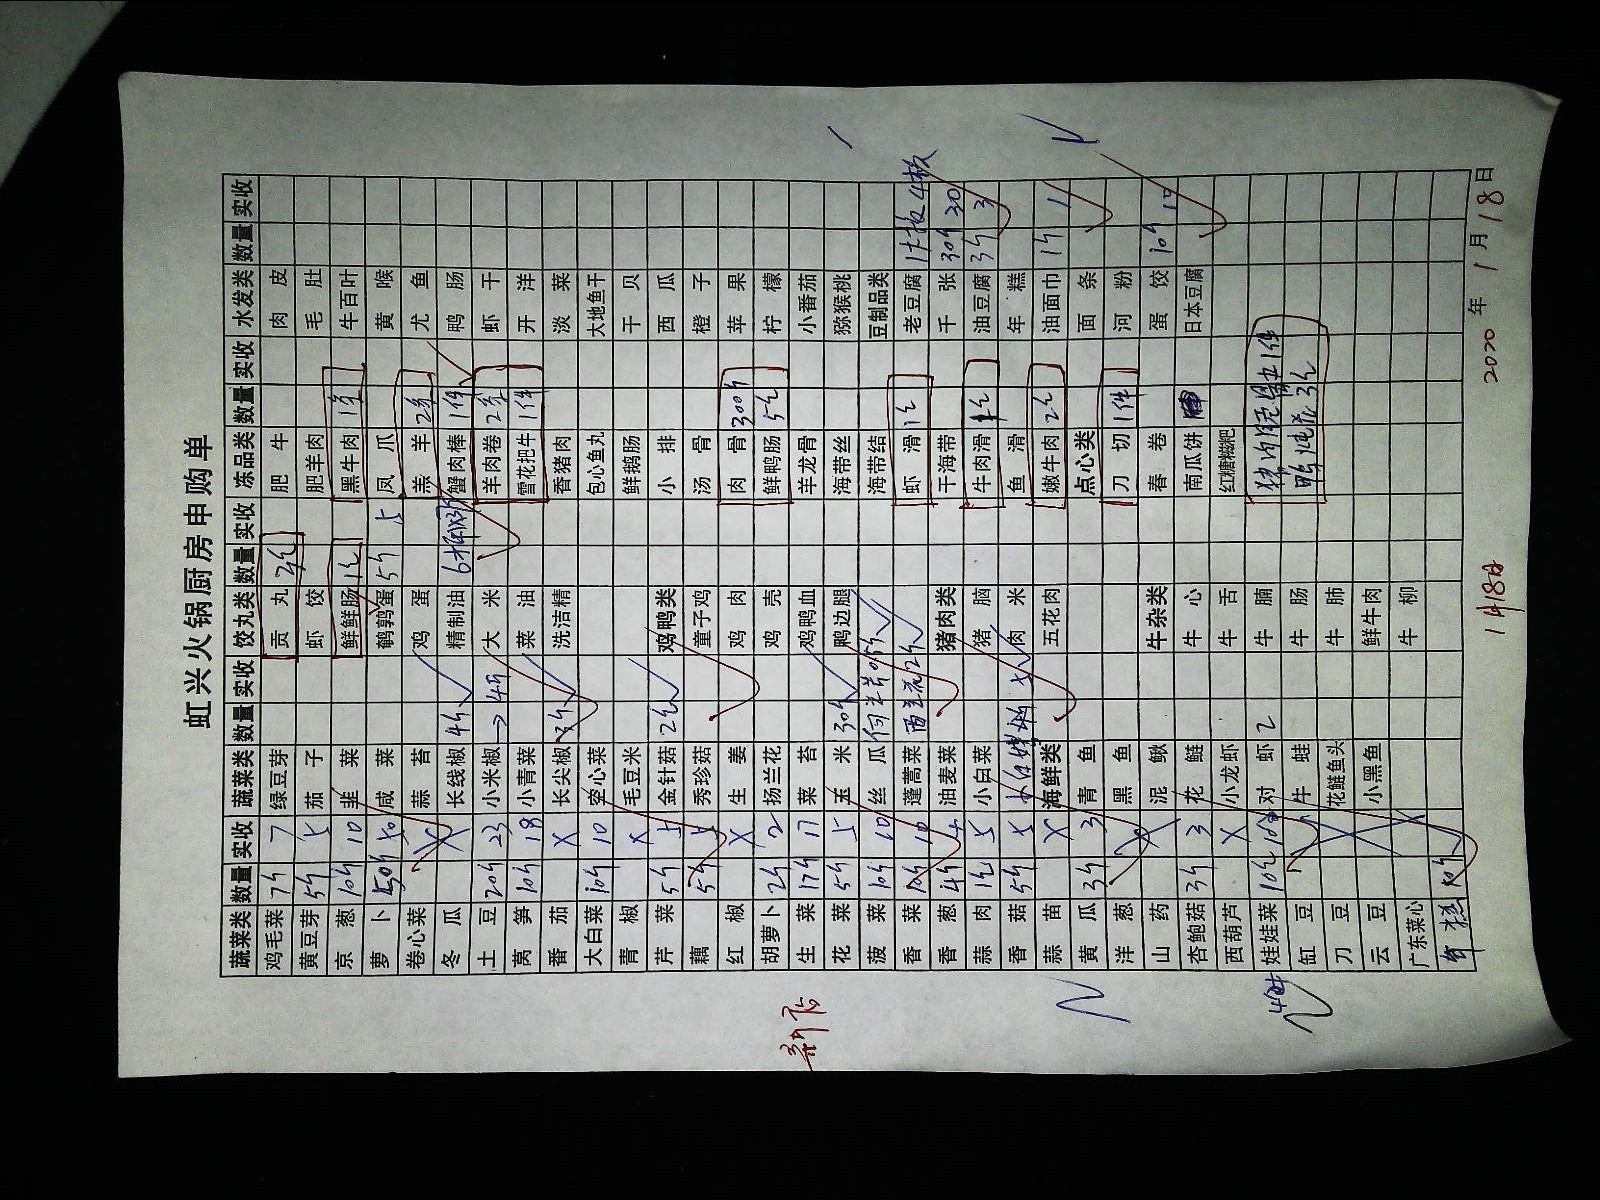 虹兴火锅厨房申购单
蔬菜类 数量 实收 蔬菜类 数量 实收 饺丸类 数量 实收 冻品类 数量 实收 水发类 数量 实收
鸡毛菜 7斤 7 绿豆芽 贡丸 肥牛 肉皮
黄豆芽 5斤 5 茄子 虾饺 肥羊肉 毛肚
京葱 10斤 10 韭菜 鲜鲜肠 1包 黑牛肉 牛百叶
萝卜 50斤 50 咸菜 鹌鹑蛋 5斤 5 凤爪 黄喉
卷心菜 X 蒜苔 鸡蛋 羔羊 尤鱼
冬瓜 X 长线椒 4斤 精制油 蟹肉棒 1件 鸭肠
土豆 20斤 23 小米椒 → 4斤 大米 羊肉卷 虾干
莴笋 10斤 18 小青菜 菜油 雪花把牛 1件 开洋
番茄 X 长尖椒 洗洁精 香猪肉 淡菜
大白菜 10斤 10 空心菜 包心鱼丸 大地鱼干
青椒 X 毛豆米 鲜鹅肠 干贝
芹菜 5斤 5 金针菇 2包 鸡鸭类 小排 西瓜
藕 5斤 5 秀珍菇 童子鸡 汤骨 橙子
红椒 X 生姜 鸡肉 肉骨 300斤 苹果
胡萝卜 2斤 2 扬兰花 鸡壳 鲜鸭肠 5包 柠檬
生菜 17斤 17 菜苔 鸡鸭血 羊龙骨 小番茄
花菜 5斤 5 玉米 30斤 鸭边腿 海带丝 猕猴桃
菠菜 10斤 10 丝瓜 海带结 豆制品类
香菜 10斤 10 蓬蒿菜 西兰花 2包 虾滑 1包 老豆腐 1大板 4板
香葱 4斤 4 油麦菜 猪肉类 干海带 千张 30斤 30
蒜肉 1包 5 小白菜 猪脑 牛肉滑 油豆腐 3斤 3
香菇 5斤 5 肉米 鱼滑 年糕
蒜苗 X 海鲜类 五花肉 嫩牛肉 2包 油面巾 1斤 1
黄瓜 3斤 3 青鱼 点心类 面条
洋葱 黑鱼 刀切 1件 河粉
山药 X 泥鳅 牛杂类 春卷 蛋饺 10斤 10
杏鲍菇 3斤 3 花鲢 牛心 南瓜饼 日本豆腐
西葫芦 X 小龙虾 牛舌 红糖糍粑
娃娃菜 10包 对虾 2 牛腩
缸豆 牛蛙 牛肠
刀豆 花鲢鱼头 牛肺
云豆 小黑鱼 鲜牛肉
广东菜心 牛柳
年糕 10斤
2020 年 1 月 18 日
1月18日